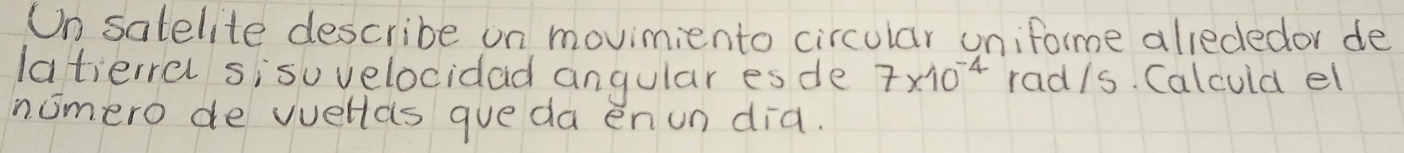 Un satelite describe un movimiento circular uniforme alrededor de
la tierra si su velocidad angular es de 7x10⁻⁴ rad/s. Calcula el
número de vueltas que da en un dia.